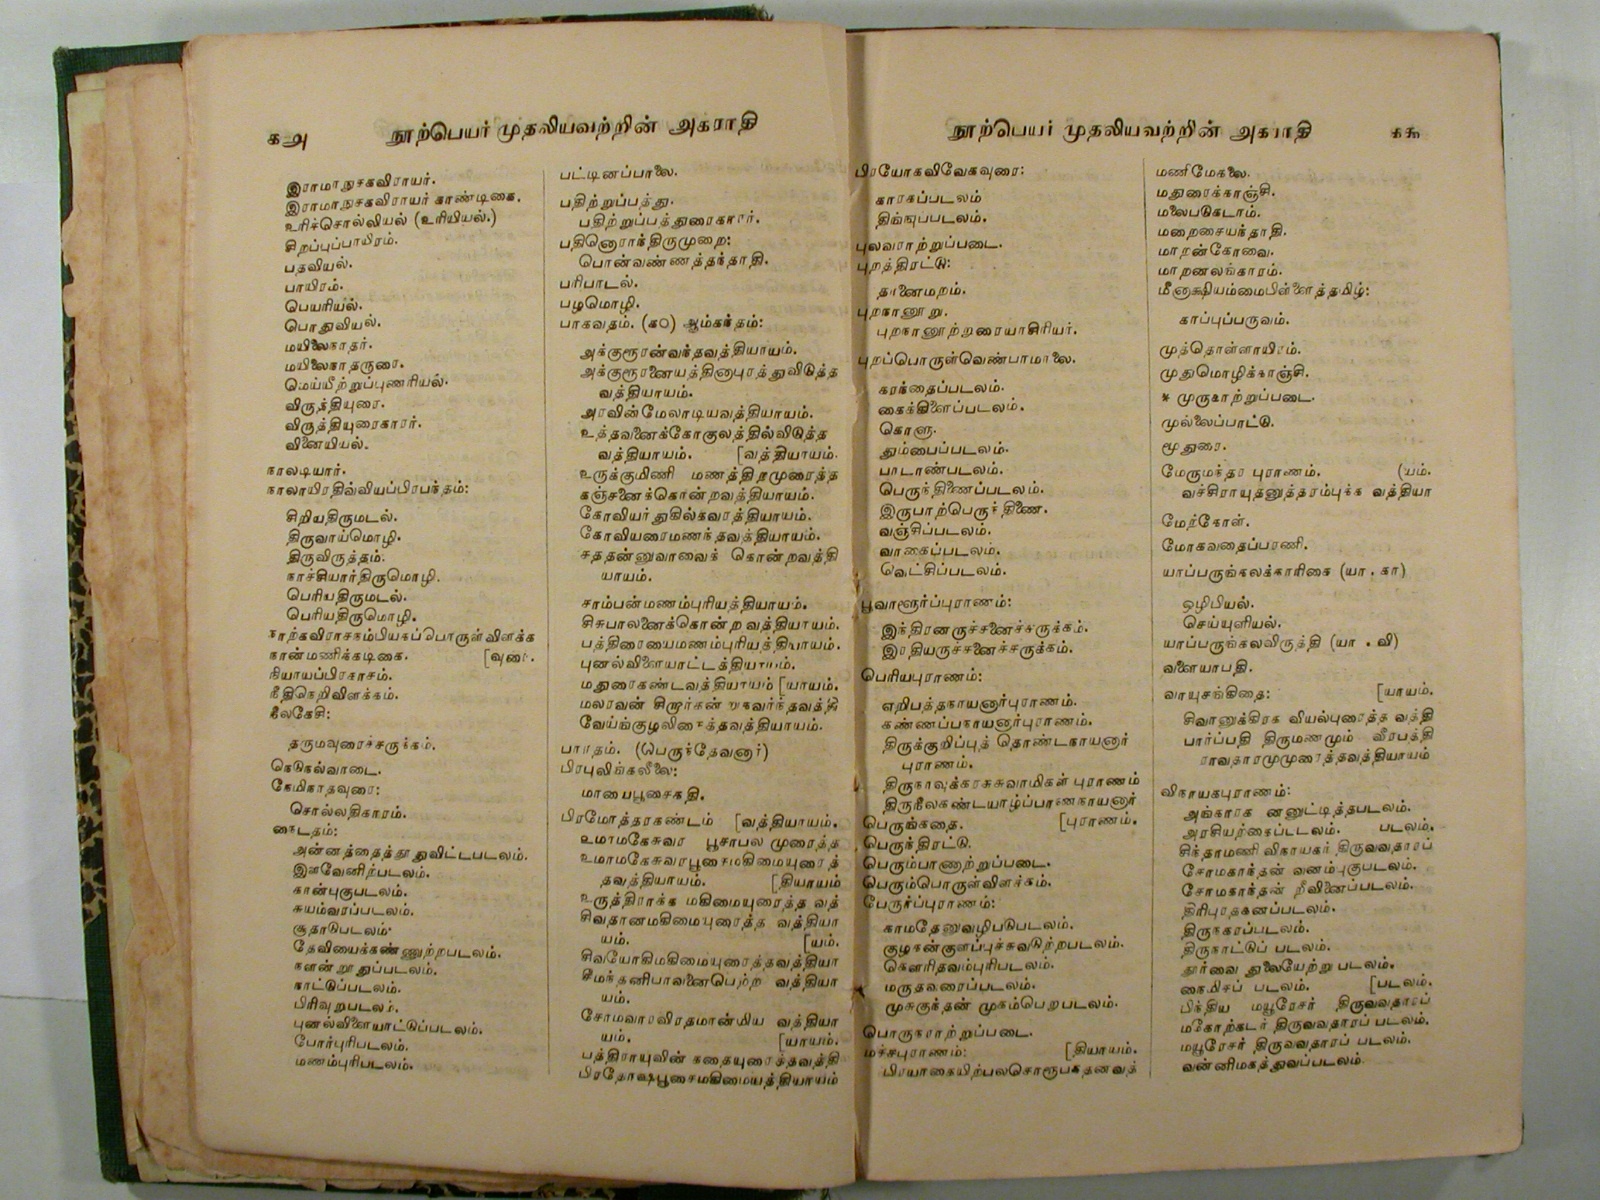 க௮
நூற்பெயர் முதலியவற்றின் அகராதி
இராமாநுசகவிராயர்.
இராமாநுசகவிராயர் காண்டிகை.
உரிச்சொல்லியல் (உரியியல்.)
சிறப்புப்பாயிரம்.
பதவியல்.
பாயிரம்.
பெயரியல்.
பொதுவியல்.
மயிலைநாதர்.
மயிலைநாதருரை.
மெய்யீற்றுப்புணரியல்.
விருத்தியுரை.
விருத்தியுரைகாரர்.
வினையியல்.
நாலடியார்.
நாலாயிரதிவ்வியப்பிரபந்தம்:
சிறியதிருமடல்.
திருவாய்மொழி.
திருவிருத்தம்.
நாச்சியார்திருமொழி.
பெரியதிருமடல்.
பெரியதிருமொழி.
நாற்கவிராசநம்பியகப்பொருள்விளக்க
நான்மணிக்கடிகை. [வுரை.
நியாயப்பிரகாசம்.
நீதிநெறிவிளக்கம்.
நீலகேசி:
தருமவுரைச்சருக்கம்.
நெடுநல்வாடை.
நேமிநாதவுரை:
சொல்லதிகாரம்.
நைடதம்:
அன்னத்தைத்தூதுவிட்டபடலம்.
இளவேனிற்படலம்.
கான்புகுபடலம்.
சுயம்வரப்படலம்.
சூதாடுபடலம்.
தேவியைக்கண்ணுற்றபடலம்.
நளன்றூதுப்படலம்.
நாட்டுப்படலம்.
பிரிவுறுபடலம்.
புனல்விளையாட்டுப்படலம்.
போர்புரிபடலம்.
மணம்புரிபடலம்.
பட்டினப்பாலை.
பதிற்றுப்பத்து.
பதிற்றுப்பத்துரைகாரர்.
பதினொராந்திருமுறை:
பொன்வண்ணத்தந்தாதி.
பரிபாடல்.
பழமொழி.
பாகவதம். (க௦) ஆம்கந்தம்:
அக்குரூரன்வந்தவத்தியாயம்.
அக்குரூரனையத்தினாபுரத்துவிடுத்த
வத்தியாயம்.
அரவின்மேலாடியவத்தியாயம்.
உத்தவனைக்கோகுலத்தில்விடுத்த
வத்தியாயம். [வத்தியாயம்.
உருக்குமிணி மணத்திறமுரைத்த
கஞ்சனைக்கொன்றவத்தியாயம்.
கோவியர்துகில்கவரத்தியாயம்.
கோவியரைமணந்தவத்தியாயம்.
சததன்னுவாவைக் கொன்றவத்தி
யாயம்.
சாம்பன்மணம்புரியத்தியாயம்.
சிசுபாலனைக்கொன்றவத்தியாயம்.
பத்திரையைமணம்புரியத்தியாயம்.
புனல்விளையாட்டத்தியாயம்.
மதுரைகண்டவத்தியாயம் [யாயம்.
வேய்ங்குழலிசைத்தவத்தியாயம்.
பாரதம். (பெருந்தேவனார்)
பிரபுலிங்கலீலை:
மாயைபூசைகதி.
பிரமோத்தரகண்டம் [வத்தியாயம்.
உமாமகேசுவர பூசாபல முரைத்த
உமாமகேசுவரபூசைமகிமையுரைத்
தவத்தியாயம். [தியாயம்
உருத்திராக்க மகிமையுரைத்த வத்
சிவதானமகிமையுரைத்த வத்தியா
யம். [யம்.
சிவயோகிமகிமையுரைத்தவத்தியா
சீமந்தனிபாவனைபெற்ற வத்தியா
யம்.
சோமவாரவிரதமான்மிய வத்தியா
யம். [யாயம்.
பத்திராயுவின் கதையுரைத்தவத்தி
பிரதோஷபூசைமகிமையத்தியாயம்
நூற்பெயர் முதலியவற்றின் அகராதி
க௯
பிரயோகவிவேகவுரை:
காரகப்படலம்
திங்ஙுப்படலம்.
புலவராற்றுப்படை.
புறத்திரட்டு:
தானைமறம்.
புறநானூறு.
புறநானூற்றுரையாசிரியர்.
புறப்பொருள்வெண்பாமாலை.
கரந்தைப்படலம்.
கைக்கிளைப்படலம்.
கொளு.
தும்பைப்படலம்.
பாடாண்படலம்.
பெருந்திணைப்படலம்.
இருபாற்பெருந்திணை.
வஞ்சிப்படலம்.
வாகைப்படலம்.
வெட்சிப்படலம்.
பூவாளூர்ப்புராணம்:
இந்திரனருச்சனைச்சருக்கம்.
இரதியருச்சனைச்சருக்கம்.
பெரியபுராணம்:
எறிபத்தநாயனார்புராணம்.
கண்ணப்பநாயனார்புராணம்.
திருக்குறிப்புத் தொண்டநாயனார்
புராணம்.
திருநாவுக்கரசுசுவாமிகள் புராணம்
திருநீலகண்டயாழ்ப்பாணநாயனார்
பெருங்கதை. [புராணம்.
பெருந்திரட்டு.
பெரும்பாணாற்றுப்படை.
பெரும்பொருள்விளக்கம்.
பேரூர்ப்புராணம்:
காமதேனுவழிபடுபடலம்.
குழகன்குளப்புச்சுவடுற்றபடலம்.
கௌரிதவம்புரிபடலம்.
மருதவரைப்படலம்.
முசுகுந்தன் முகம்பெறுபடலம்.
பொருநராற்றுப்படை.
மச்சபுராணம்: [தியாயம்.
பிரயாகையிற்பலசொரூபகதனவத்
மணிமேகலை.
மதுரைக்காஞ்சி.
மலைபடுகடாம்.
மறைசையந்தாதி.
மாறன்கோவை.
மாறனலங்காரம்.
மீனாக்ஷியம்மைபிள்ளைத்தமிழ்:
காப்புப்பருவம்.
முத்தொள்ளாயிரம்.
முதுமொழிக்காஞ்சி.
* முருகாற்றுப்படை.
முல்லைப்பாட்டு.
மூதுரை.
மேருமந்தர புராணம். (யம்.
வச்சிராயுதனுத்தரம்புக்க வத்தியா
மேற்கோள்.
மோகவதைப்பரணி.
யாப்பருங்கலக்காரிகை (யா . கா)
ஒழிபியல்.
செய்யுளியல்.
யாப்பருங்கலவிருத்தி (யா . வி)
வளையாபதி.
வாயுசங்கிதை: [யாயம்.
சிவானுக்கிரக வியல்புரைத்த வத்தி
பார்ப்பதி திருமணமும் வீரபத்தி
ராவதாரமுமுரைத்தவத்தியாயம்
விநாயகபுராணம்:
அங்காரக னனுட்டித்தபடலம்.
அரசியற்கைப்படலம். படலம்.
சிந்தாமணி விநாயகர் திருவவதாரப்
சோமகாந்தன் வனம்புகுபடலம்.
சோமகாந்தன் றீவினைப்படலம்.
திரிபுரதகனப்படலம்.
திருநகரப்படலம்.
திருநாட்டுப் படலம்.
தூர்வை துலையேற்று படலம்.
நைமிசப் படலம். [படலம்.
பிந்திய மயூரேசர் திருவவதாரப்
மகோற்கடர் திருவவதாரப் படலம்.
மயூரேசர் திருவவதாரப் படலம்.
வன்னிமகத்துவப்படலம்.